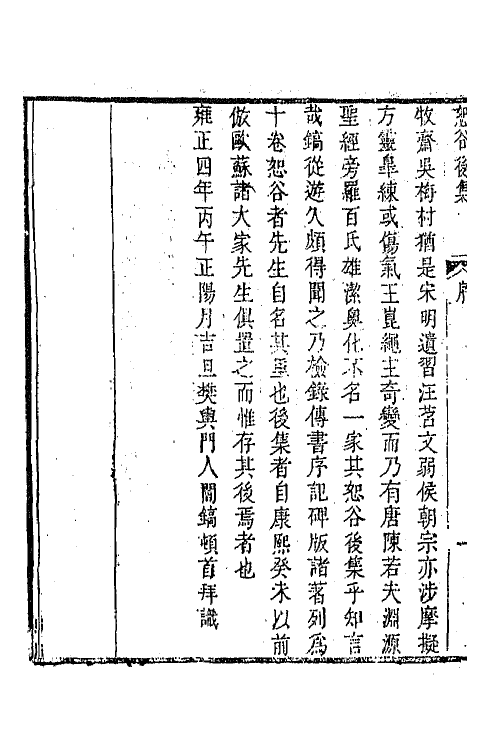 恕谷後集　序　一
牧齋吳梅村猶是宋明遺習汪苕文弱侯朝宗亦涉摩擬
方靈皋練或傷氣王崑繩主奇變而乃有唐陳若夫淵源
聖經旁羅百氏雄潔奧化不名一家其恕谷後集乎知言
哉鎬從遊久頗得聞之乃檢錄傳書序記碑版諸著列為
十卷恕谷者先生自名其里也後集者自康熙癸未以前
倣歐蘇諸大家先生俱置之而惟存其後焉者也
雍正四年丙午正陽月吉旦樊輿門人閻鎬頓首拜識